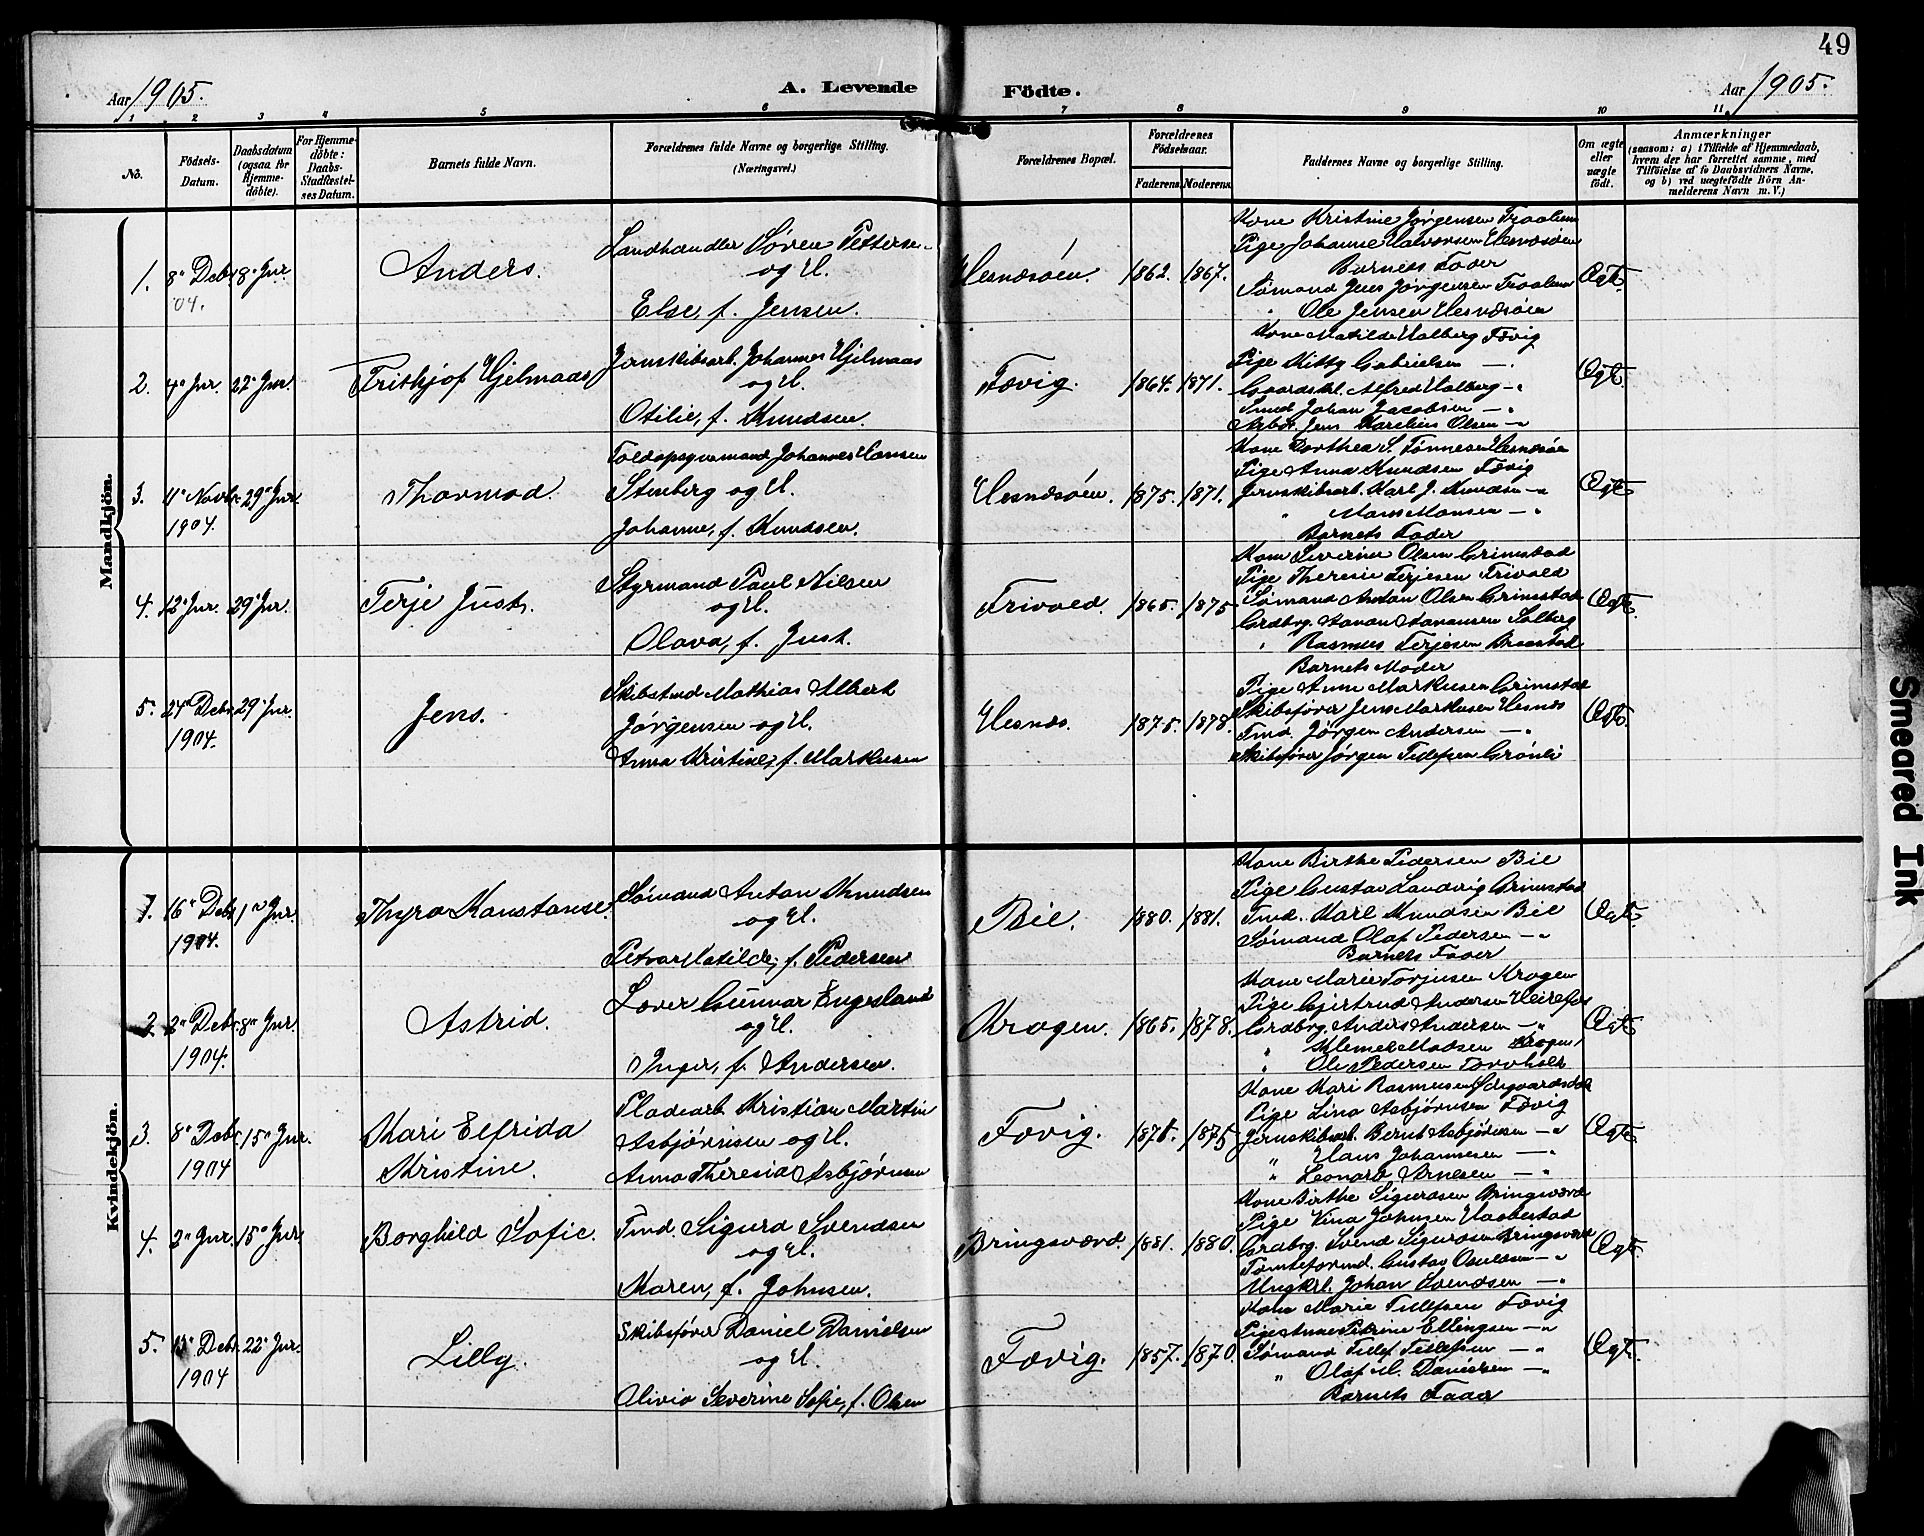 49
Aar 1905.
A. Levende
Födte.
Aar 1905.
1 2 3 4 5 6 7 8 9 10 11
No.
Födsels-Datum.
Daabsdatum (ogsaa for Hjemmedöbte).
For Hjemmedöbte: Daabs-Stadfæstelses Datum.
Barnets fulde Navn.
Forældrenes fulde Navne og borgerlige Stilling. (Næringsvei.)
Forældrenes Bopæl.
Forældrenes Födselsaar.
Faderens. Moderens.
Faddernes Navne og borgerlige Stilling.
Om ægte eller uægte födt.
Anmærkninger
(saasom: a) i Tilfælde af Hjemmedaab, hvem der har forrettet samme, med Tilföielse af to Daabsvidners Navne, og b) ved uægtefödte Börn Anmelderens Navn m. V.)
Mandkjön.
1. 8de Debr. 04. 8 Jnr.
Anders.
Landhandler Søren Pettersen
og H.
Else, f. Jensen.
Hesnæsøen. 1862. 1867.
Kone Kristine Jørgensen
Pige Johanne Halvorsen Hesnæsøen
Barnets Fader
Sømand Jens Jørgensen
" Ole Jensen Hesnæsøen
Ægte
2. 4de Jnr. 22de Jnr.
Frithjof Hjelmaas
Jernskibsarb. Johannes Hjelmaas
og H.
Otilie, f. Knudsen.
Fævig. 1864. 1871.
Kone Matilde Halberg Fævig
Pige Kitty Gabrielsen — "
Gaardskl. Alfred Halberg — "
Smed Johan Jacobsen — "
Arbdr. Jens Karelius Olsen — "
Ægte
3. 4de Novbr. 1904. 29de Jnr.
Thormod.
Toldopsynsmand Johannes Hansen
Stenberg og H.
Johanne, f. Knudsen.
Hesnæsøen. 1875. 1871.
Kone Dorthea S. Tønnesen Hesnæsøen
Pige Anna Knudsen Fævig
Jernskibsarb. Karl J. Knudsen — "
" Hans Hansen — "
Barnets Fader
Ægte
4. 12de Jnr. 29de Jnr.
Terje Just.
Styrmand Paul Nilsen
og H.
Olava, f. Just.
Frivold. 1865. 1875
Kone Severine Olsen Grimstad
Pige Theresie Terjesen Frivold
Sømand Anton Olsen Grimstad
Grdbrg. Aanon Aanonsen Solberg
" Rasmus Terjesen
Barnets Moder
Ægte
5. 24de Debr. 1904. 29de Jnr.
Jens.
Skibstmd Mathias Albert
Jørgensen og H.
Anna Kristine, f. Markusen
Hesnæs. 1875. 1878.
Pige Anne Markusen Grimstad
Skibsfører Jens Markusen Hesnæs
Tmd. Jørgen Andersen — "
Skibsfører Jørgen Tellefsen Grönli
Ægte
Kvindekjön.
1. 16de Debr. 1904. 1ste Jnr.
Thyra Konstanse.
Sømand Anton Knudsen
og H.
Petra Matilde, f. Pedersen
Bie. 1880. 1881.
Kone Birthe Pedersen Bie
Pige Gustav Landvig Grimstad
Tmd. Karl Knudsen Bie
Sømand Olaf Pedersen — "
Barnets Fader
Ægte
2. 2den Debr. 1904. 8de Jnr.
Astrid.
Lærer Gunnar Engesland
og H.
Inger, f. Andersen.
Kragen. 1865. 1878.
Kone Marie Torjusen Kragen
Pige Gjertrud Andersen Heirefos
Grdbrg. Anders Andersen — "
" Klemet Madsen Kragen
" Ole Pedersen
Ægte
3. 8de Debr. 1904 15de Jnr.
Kari Elfrida
Kristine.
Pladearb. Kristian Martin
Asbjørnsen og H.
Anna Theresia Asbjørnsen
Fævig. 1878. 1875
Kone Kari Rasmusen
Pige Lina Asbjørnsen Fævig
Jernskibsarb. Bernt Asbjørnsen — "
" Hans Johannesen — "
" Leonard Arnesen — "
Ægte
4. 2den Jnr. 15de Jnr.
Borghild Sofie.
Tmd. Sigurd Svendsen
og H.
Maren, f. Johnsen.
Bringsværd. 1881. 1880.
Kone Birthe Sigurdsen Bringsværd
Pige Vina Johnsen Haabestad
Grdbrg. Svend Sigurdsen Bringsværd
Tømteformd. Gustav — "
Ungkrl. Johan Svendsen — "
Ægte
5. 13de Debr. 1904 22de Jnr.
Lilly.
Skibsfører Daniel Danielsen
og H.
Olivia Severine Sofie, f. Olsen
Fævig. 1857. 1870.
Kone Marie Tellefsen Fævig
Pige Anne Petrine Ellingsen — "
Sømand Tellef Tellefsen — "
" Olaf M. Danielsen — "
Barnets Fader
Ægte
Smeared Ink